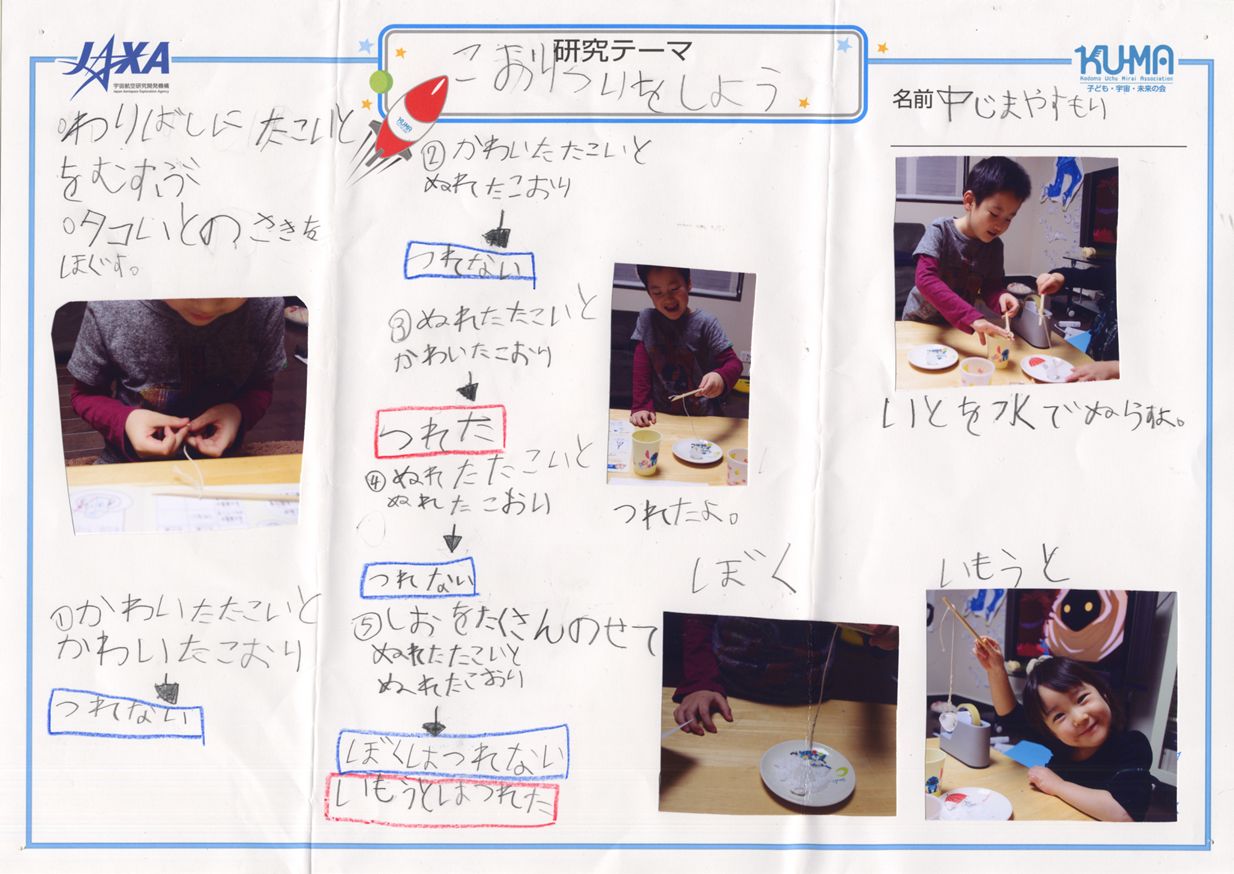 JAXA
宇宙航空研究開発機構
Japan Aerospace Exploration Agency
研究テーマ
こおりつりをしよう
KU-MA
Kodomo Uchu Mirai Association
子ども・宇宙・未来の会
名前 中じまやすもり
○わりばしに たこいと
をむすぶ
○タコいとの さきを
ほぐす。
①かわいたたこいと
かわいたこおり
つれない
KU-MA
②かわいたたこいと
ぬれたこおり
つれない
③ぬれたたこいと
かわいたこおり
つれた
④ぬれたたこいと
ぬれたこおり
つれない
⑤しおをたくさんのせて
ぬれたたこいと
ぬれたこおり
ぼくはつれない
いもうとはつれた
いとを水でぬらすよ。
つれたよ。
ぼく
いもうと